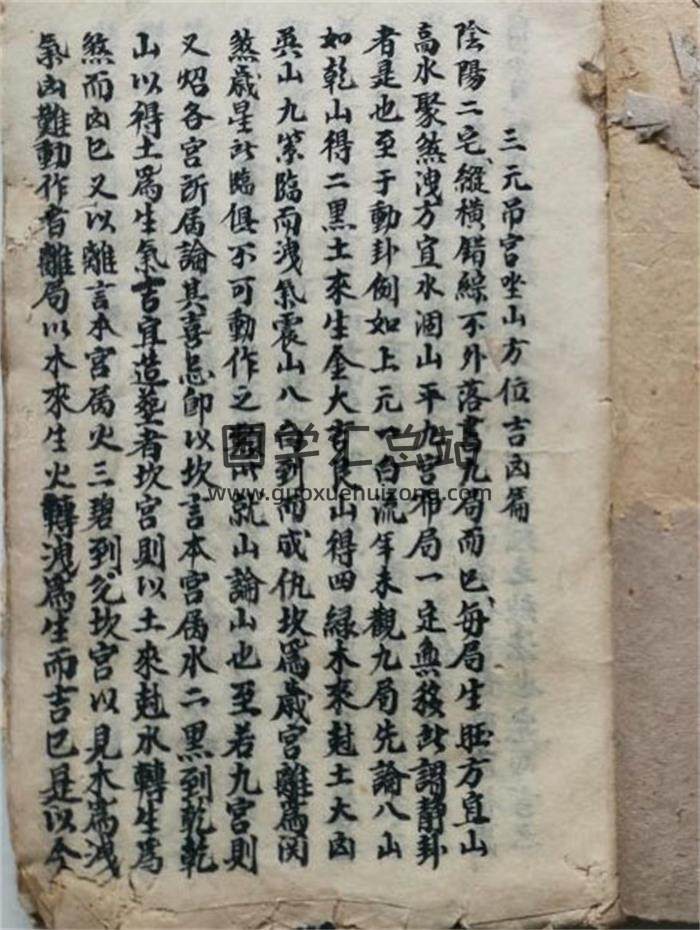 三元吊宮坐山方位吉凶篇
陰陽二宅縱橫錯綜不外落書九局而已每局生旺方宜山
高水聚煞洩方宜水涸山平九宮布局一定無移此謂靜卦
者是也至于動卦例如上元一白流年未觀九局先論八山
如乾山得二黑土來生金大吉艮山得四綠木來尅土大凶
巽山九紫臨而洩氣震山八白到而成仇坎為歲宮離為
煞歲星所臨俱不可動作之就山論山也至若九宮則
又炤各宮所屬論其喜忌即以坎言本宮屬水二黑到乾乾
山以得土為生氣吉宜造塟者坎宮則以土來尅水轉生為
煞而凶已又以離言本宮屬火三碧到兌坎宮以見木為洩
氣凶難動作者離局以木來生火轉洩為生而吉已是以今
國学汇总站
www.guoxuehuizong.com